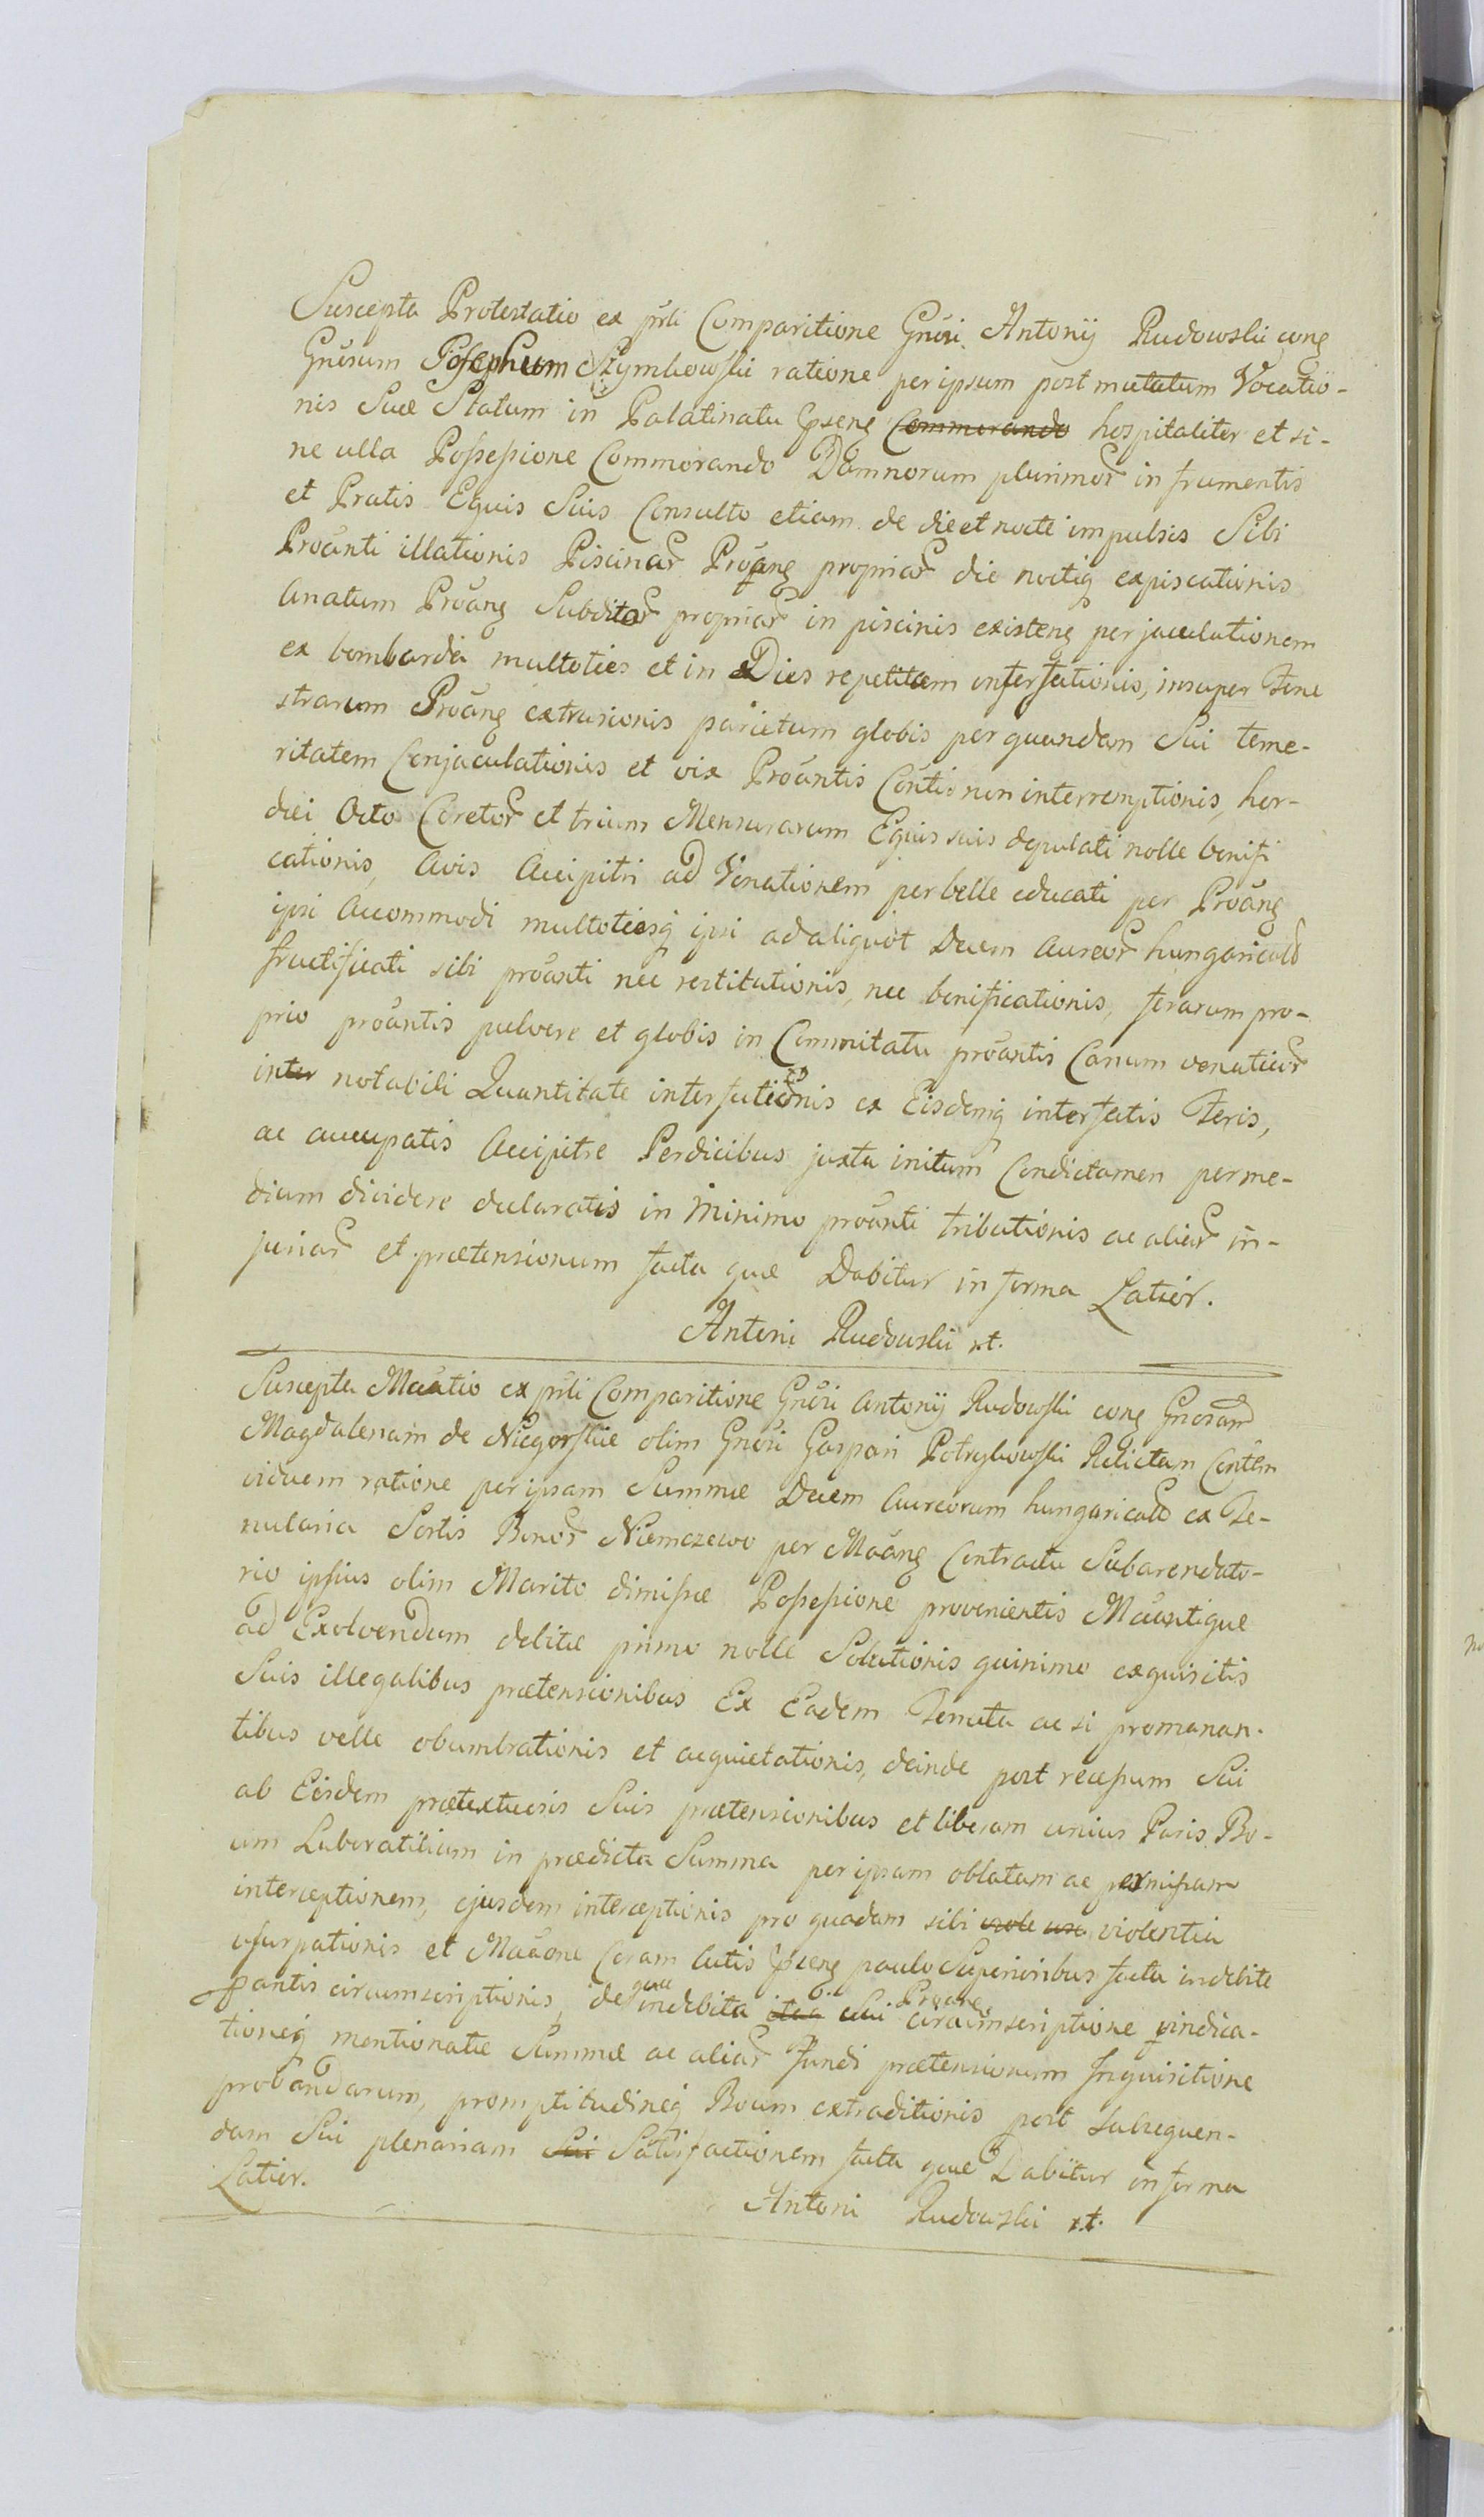 Suscepta Protestatio ex prñli Comparitione Gnõri Antonij Rudowski cong
Gnõsum Josephum Szymkowski ratione per ipsum post mutatum Vocatio-
nis Suæ Statum in Palatinatu Ipseng Commorando hospitaliter et si-
ne ulla Possessione Commorando Damnorum plurimor in frumentis
et Pratis Equis Suis Consulto etiam de die et nocte impulsis Sibi
Proanti illationis Piscinar Proang propriar die noctiq expiscationis
Anatum Proang Subditor propriar in piscinis existeng per jaculationem
ex bombarda multoties et in Dies repetitam interfectionis, insuper Fene
strarum Proang extrusionis parietum globis per quandam Sui teme-
ritatem Conjaculationis et vix Proantis Contis non interremptionis, hor-
dei Octo Coretor et trium Mensurarum Equis suis depulati nolle bonifi
cationis, Avis Accipitri ad Venationem perbelle educati per Proang
ipsi Accommodi multotiesq ipsi ad aliquot Decem Aureor hungarical
fructificati sibi proanti nec restitutionis, nec bonificationis, ferarum pro-
prio proantis pulvere et globis in Commitatu proantis Canum venaticor
inter notabili Quantitate interfectionis ex Eisdemq interfectis Feris,
ac aucupatis Accipitre Perdicibus juxta initum Condictamen per me-
dium dividere declaratis in minimo proanti tributionis ac aliar in-
juriar et prætensionum facta quæ Dabitur in forma Latior.
Antoni Rudowski xt.
Suscepta Maatio ex prñli Comparitione Gnõri Antonij Rudowski cong Gnosam
Magdalenam de Niegorskie olim Gnõri Gaspari Potrykowski Relictam Contem
viduam ratione per ipsam Summæ Decem Aureorum hungarical ex Te-
nutaria Sortis Bonor Niemczewo per Maang Contractu Subarendato-
rio ipsius olim Marito dimissæ Possessione provenientis Maantique
ad Exolvendum debitæ primo nolle Solutionis quinimo exquisitis
Suis illegalibus prætensionibus Ex Eadem Tenuta ac si promanan-
tibus velle obumbrationis et acquietationis, deinde post recessum Sui
ab Eisdem prætextuosis Suis prætensionibus et liberam unius Paris Bo-
um Laboratilium in prædicta Summa per ipsam oblatam ac permissam
interceptionem, ejusdem interceptionis pro quadam sibi violentia
usurpationis et Maaone Coram Actis Ipseng paulo Superioribus facta indebite
Pantis circumscriptionis, deque indebita Sui Proang circumscriptione vindica-
tioneq mentionatæ Summæ ac aliar Fundi prætensionum Inquisitione
probandarum, promptitudineq Boum extraditionis post subsequen-
dam Sui plenariam Sui Satisfactionem facta quæ Dabitur in forma
Latior.
Antoni Rudowski xt.